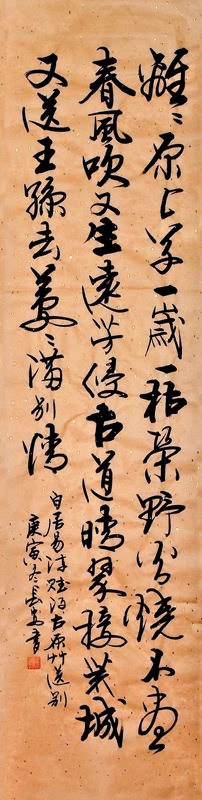 離〻原上草一歲一枯榮野火燒不盡
春風吹又生遠芳侵古道晴翠接荒城
又送王孫去萋〻滿別情
白居易詩賦得古原艸送別
庚寅冬長書